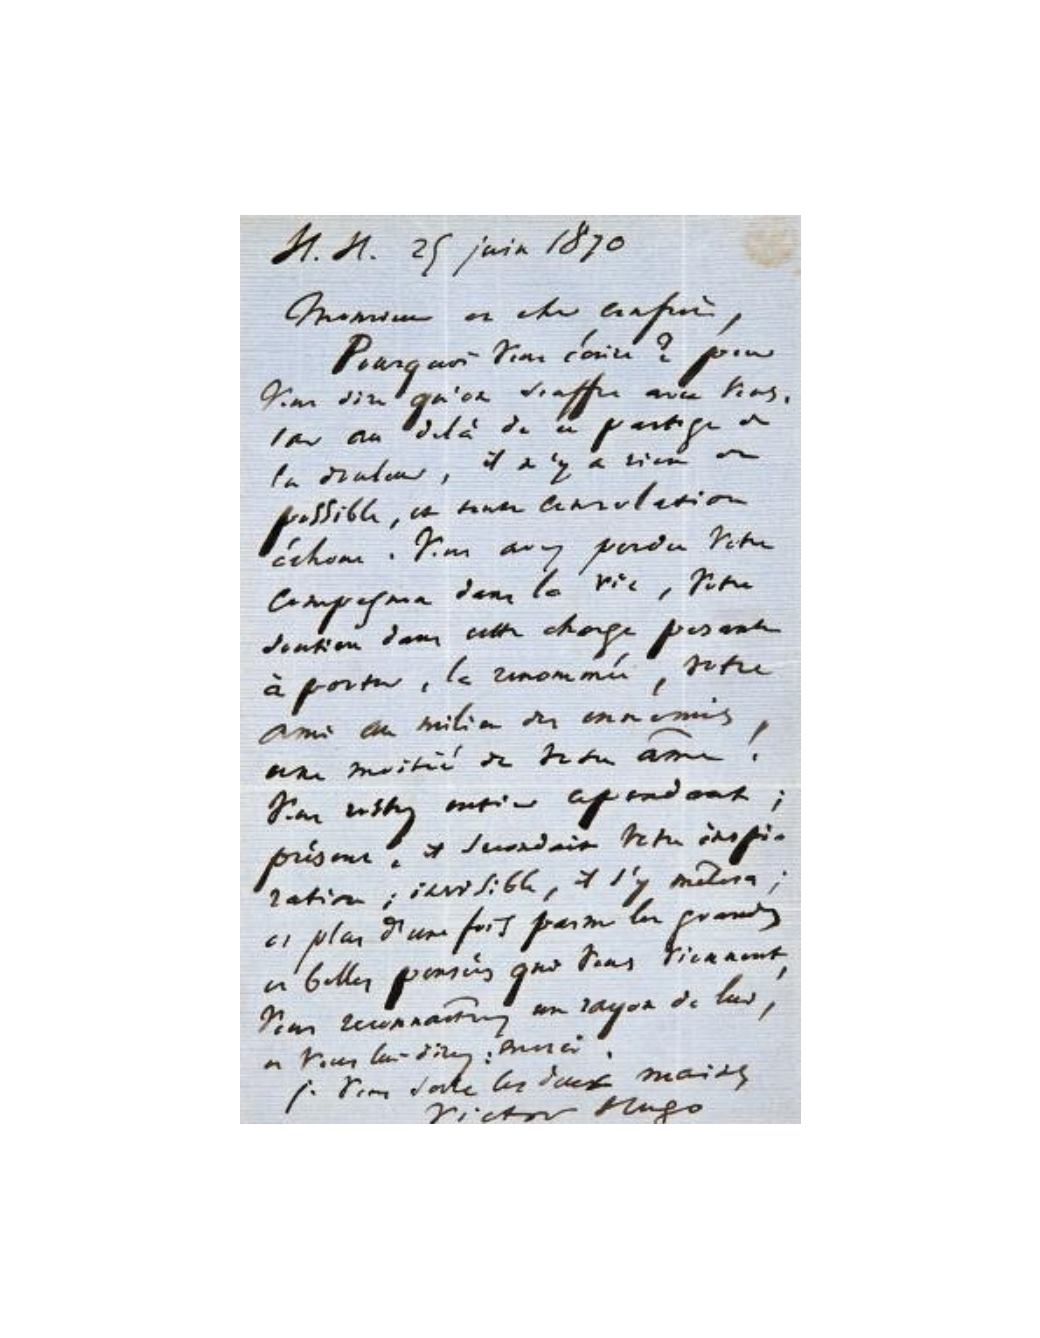 H. H. 25 juin 1870
Monsieur et cher confrère,
Pourquoi vous écrire ? pour
vous dire qu'on souffre avec vous.
Car au delà de ce partage de
la douleur, il n'y a rien de
possible, et toute consolation
échoue. Vous avez perdu votre
compagnon dans la vie, votre
soutien dans cette charge pesante
à porter, la renommée, votre
ami au milieu des ennemis,
une moitié de votre âme !
Vous restez entier cependant ;
présent, il secondait votre inspi-
ration ; invisible, il s'y mêlera ;
et plus d'une fois parmi les grandes
et belles pensées qui vous viennent,
vous reconnaîtrez un rayon de lui,
et vous lui direz : merci.
je vous serre les deux mains
Victor Hugo